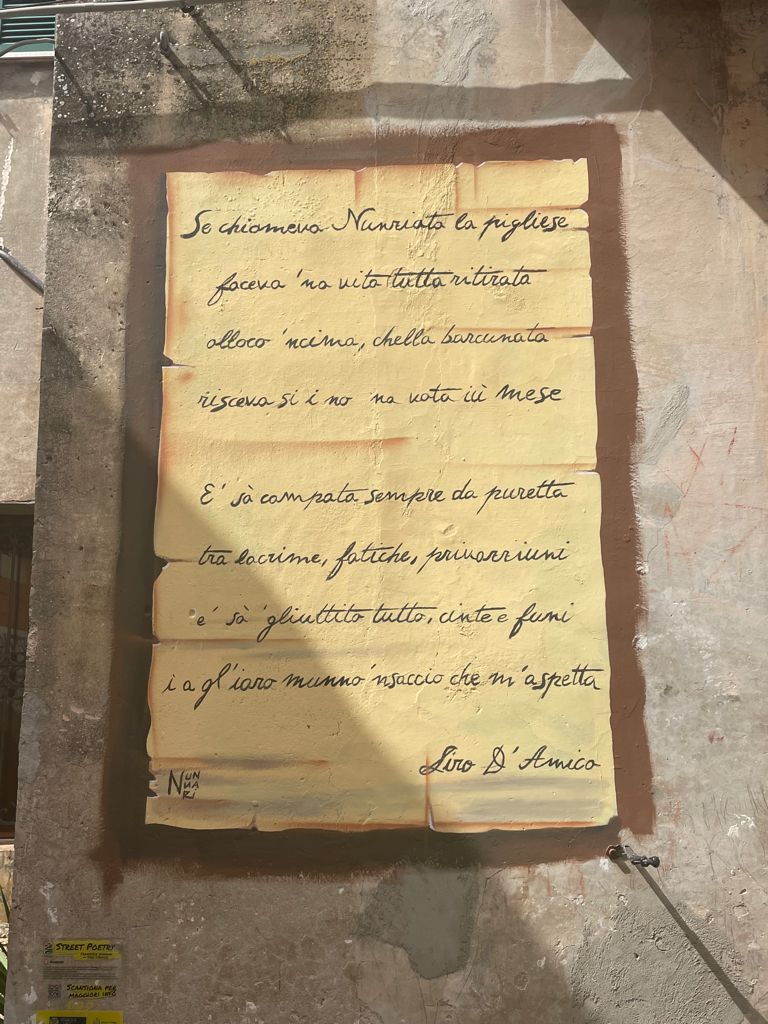 Se chiameva Nunziata la pigliese
faceva 'na vita tutta ritirata
alloco 'ncima, chella barcunata
risceva si i no 'na vota iù mese
E' sà campata sempre da puretta
tra lacrime, fatiche, privazziuni
e' sà 'gliuttito tutto, cinte e funi
i a gl'iaro munno 'nsaccio che m'aspetta
Liro D'Amico
NUNNARI
STREET POETRY
SCANSIONA PER
MAGGIORI INFO